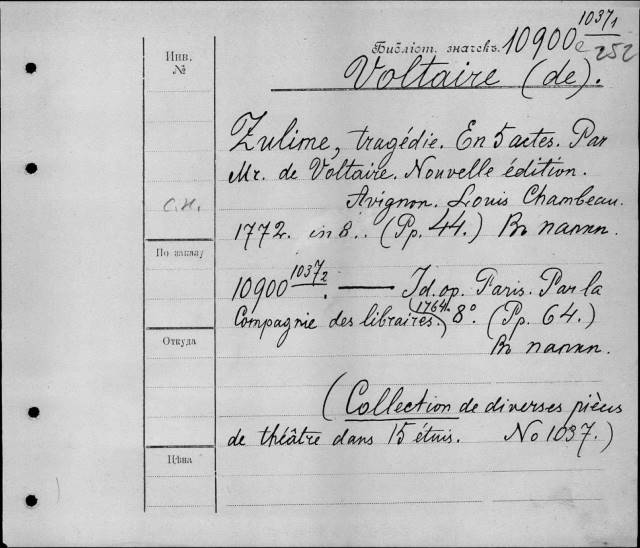 Инв.
№
Библіот. значекъ. 10900 1037/1
252
Voltaire (de).
Zulime, tragédie. En 5 actes. Par
Mr. de Voltaire. Nouvelle édition.
Avignon. Louis Chambeau.
1772. in 8.. (Pp. 44.) Въ папкѣ.
По заказу
10900 1037/2. — Id. op. Paris. Par la
Compagnie des libraires. (1764.) 8°. (Pp. 64.)
Откуда
Въ папкѣ.
(Collection de diverses pièces
de théâtre dans 15 étuis. No 1037.)
Цѣна